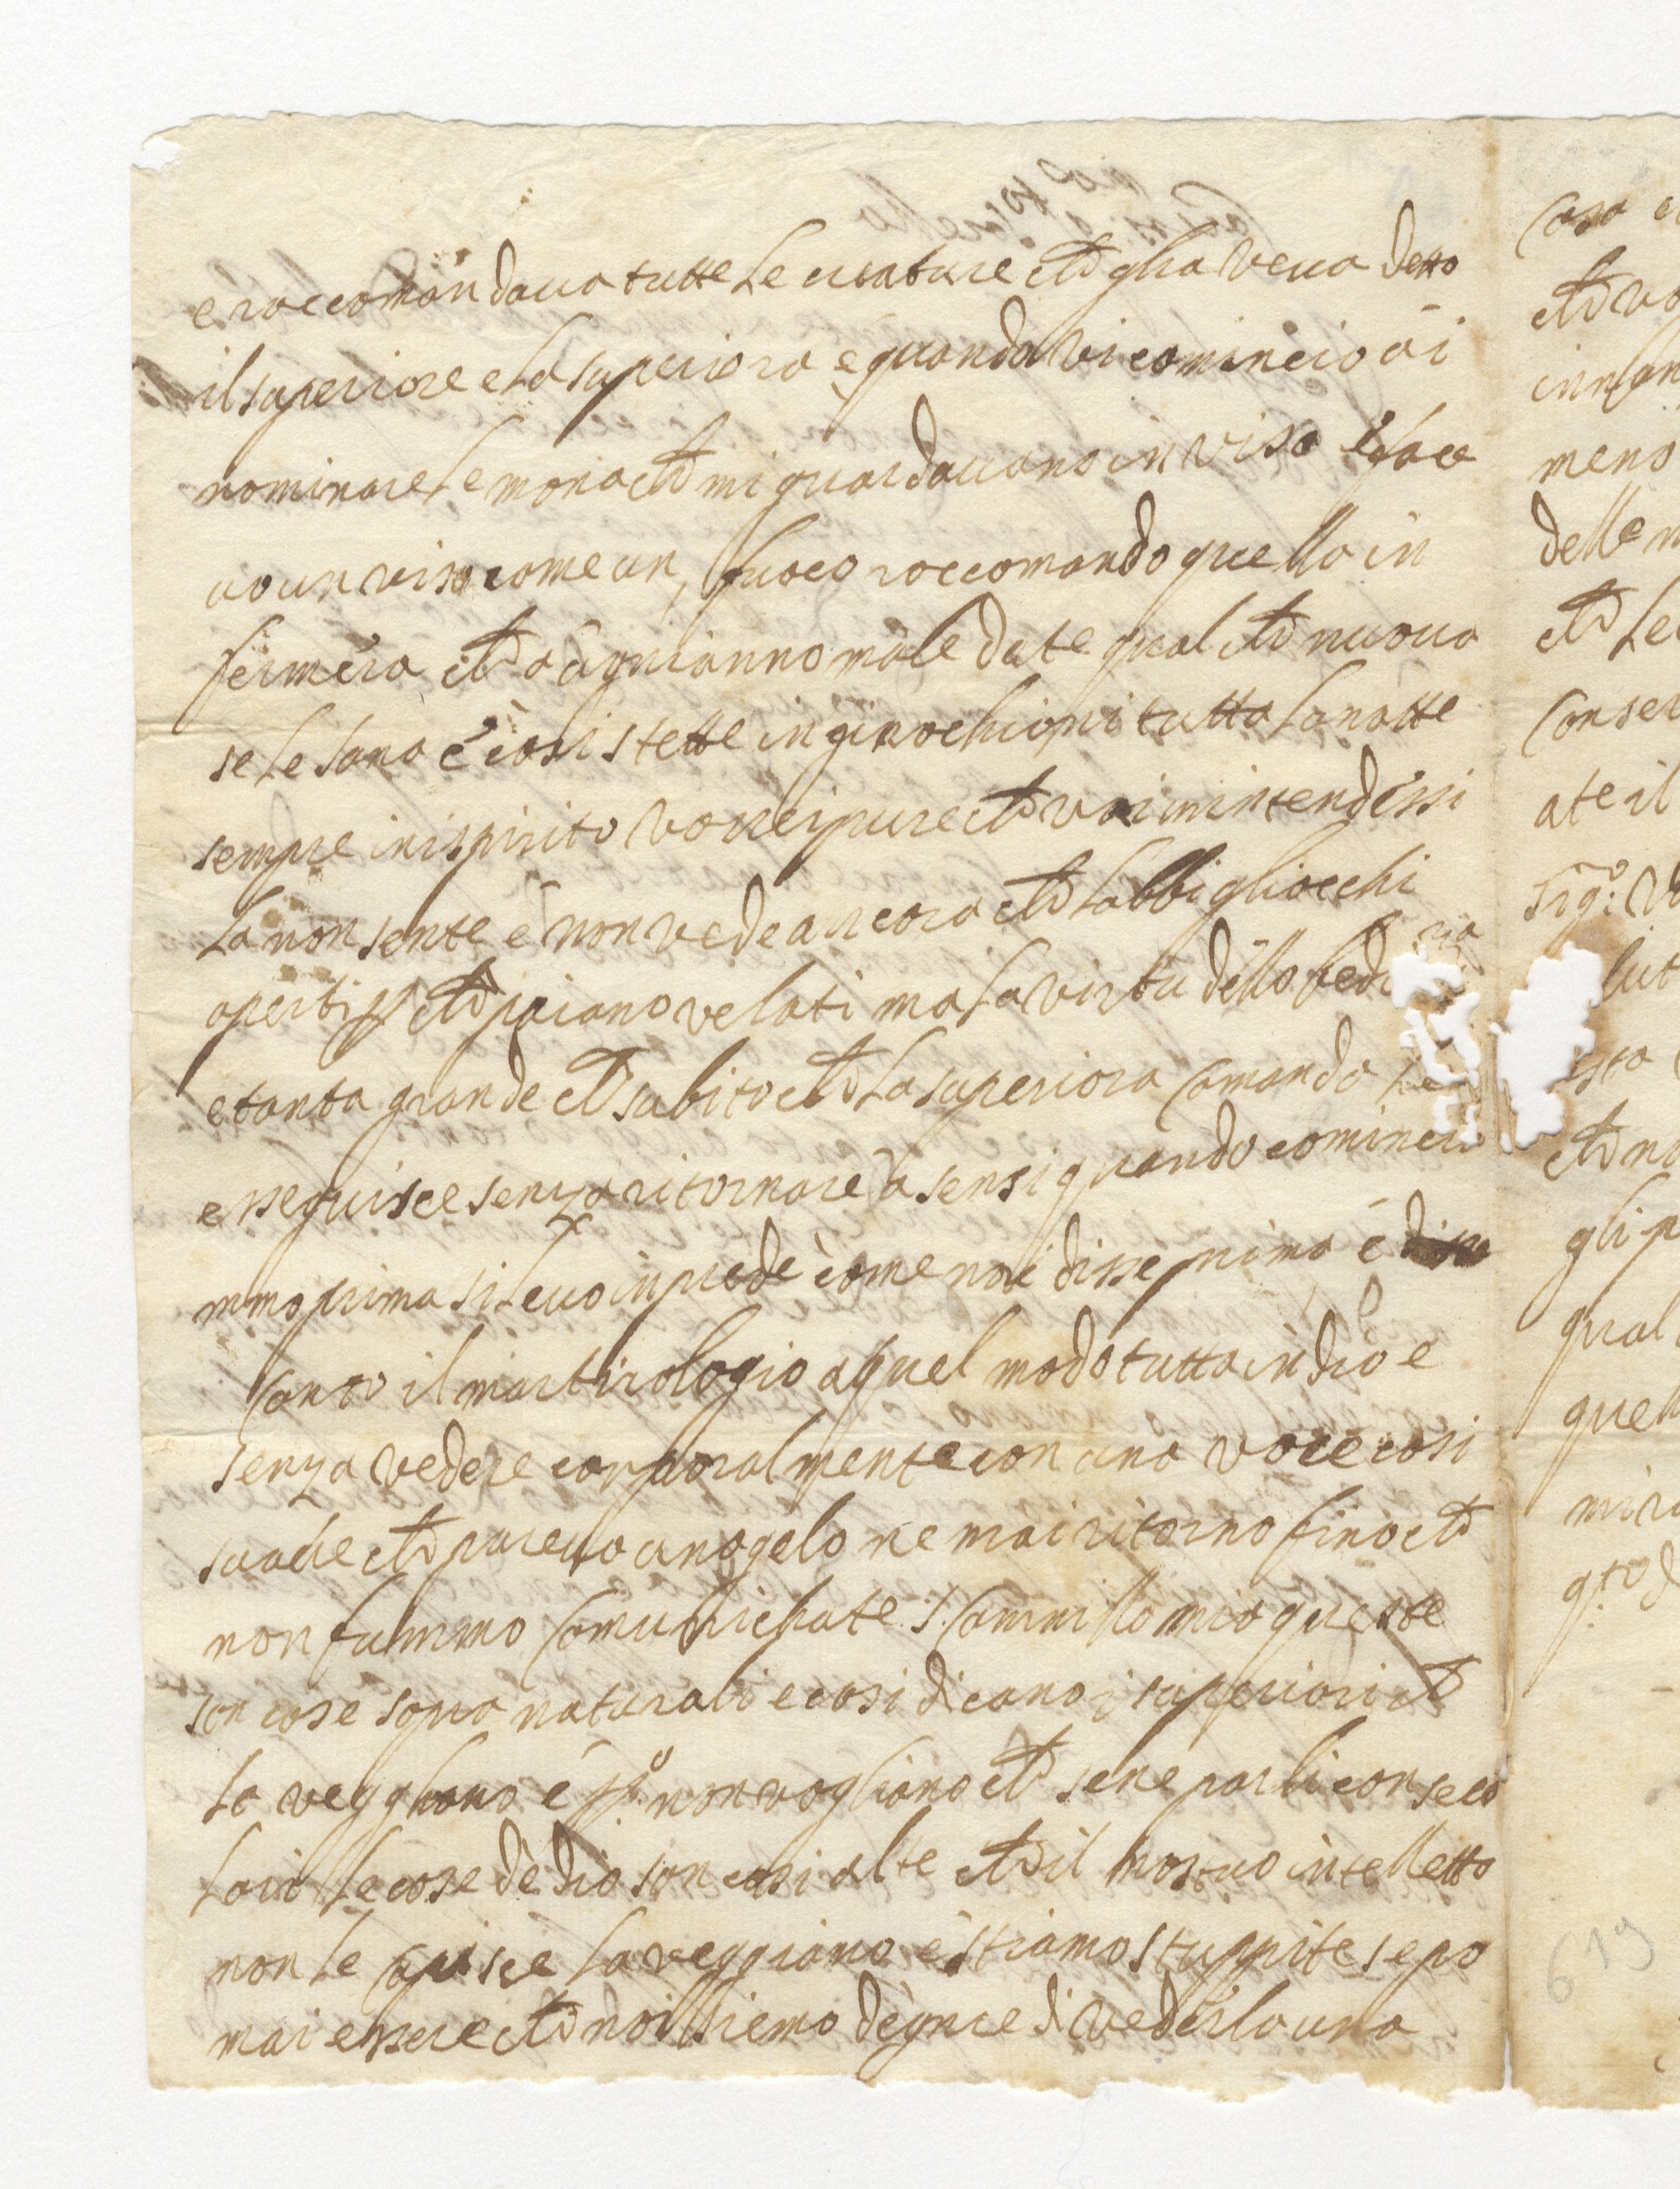 e raccomandava tutte le criature ch gliaveva detto
il superiore e la superiora e quando vi comincio á i
nominare le monache mi guardavano in viso e face
va un viso come un fuoco raccomando quella in
fermera ch a ogni anno male date qual ch nuova
se le sana é cosi stette inginochioni tutta la notte
sempre inispirito vorrei pure ch voi mintendessi
la non sente é non vede ancora ch labbi gliocchi
aperti pp ch paiano velati ma la virtu dello
e tanta grande ch subito ch la superiora comanda le
esseguisce senza ritornare á sensi quando cominci
mmo prima si levo in piede come noi disse prima é
canto il martirologio a quel modo tutta in dio e
senza vedere corporalmente con una voce cosi
suave ch pareva un agelo ne mai ritorno fino ch
non fummo comunichate S. Cammillo mio queste
son cose sopra naturali e cosi dicano i superiori ch
la vegghano é pp non vogliano ch sene parli con seco
lari le cose de dio son cosi alte ch il nostro intelletto
non le capisce la veggiamo é stiamo stuppite se po
mai essere ch noi siemo degnie di vederla una
casa
ch vo
innan
meno
delle m
ch le
conser
ate il
Sig.
lut
sta
ch no
gli p
qual
quel
mi ri
q.to d
619